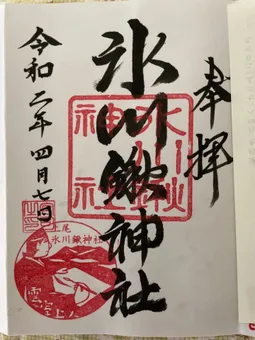 奉拝
氷川鍬神社
令和二年四月七日
氷川鍬神社
上尾
氷川鍬神社
雲室上人